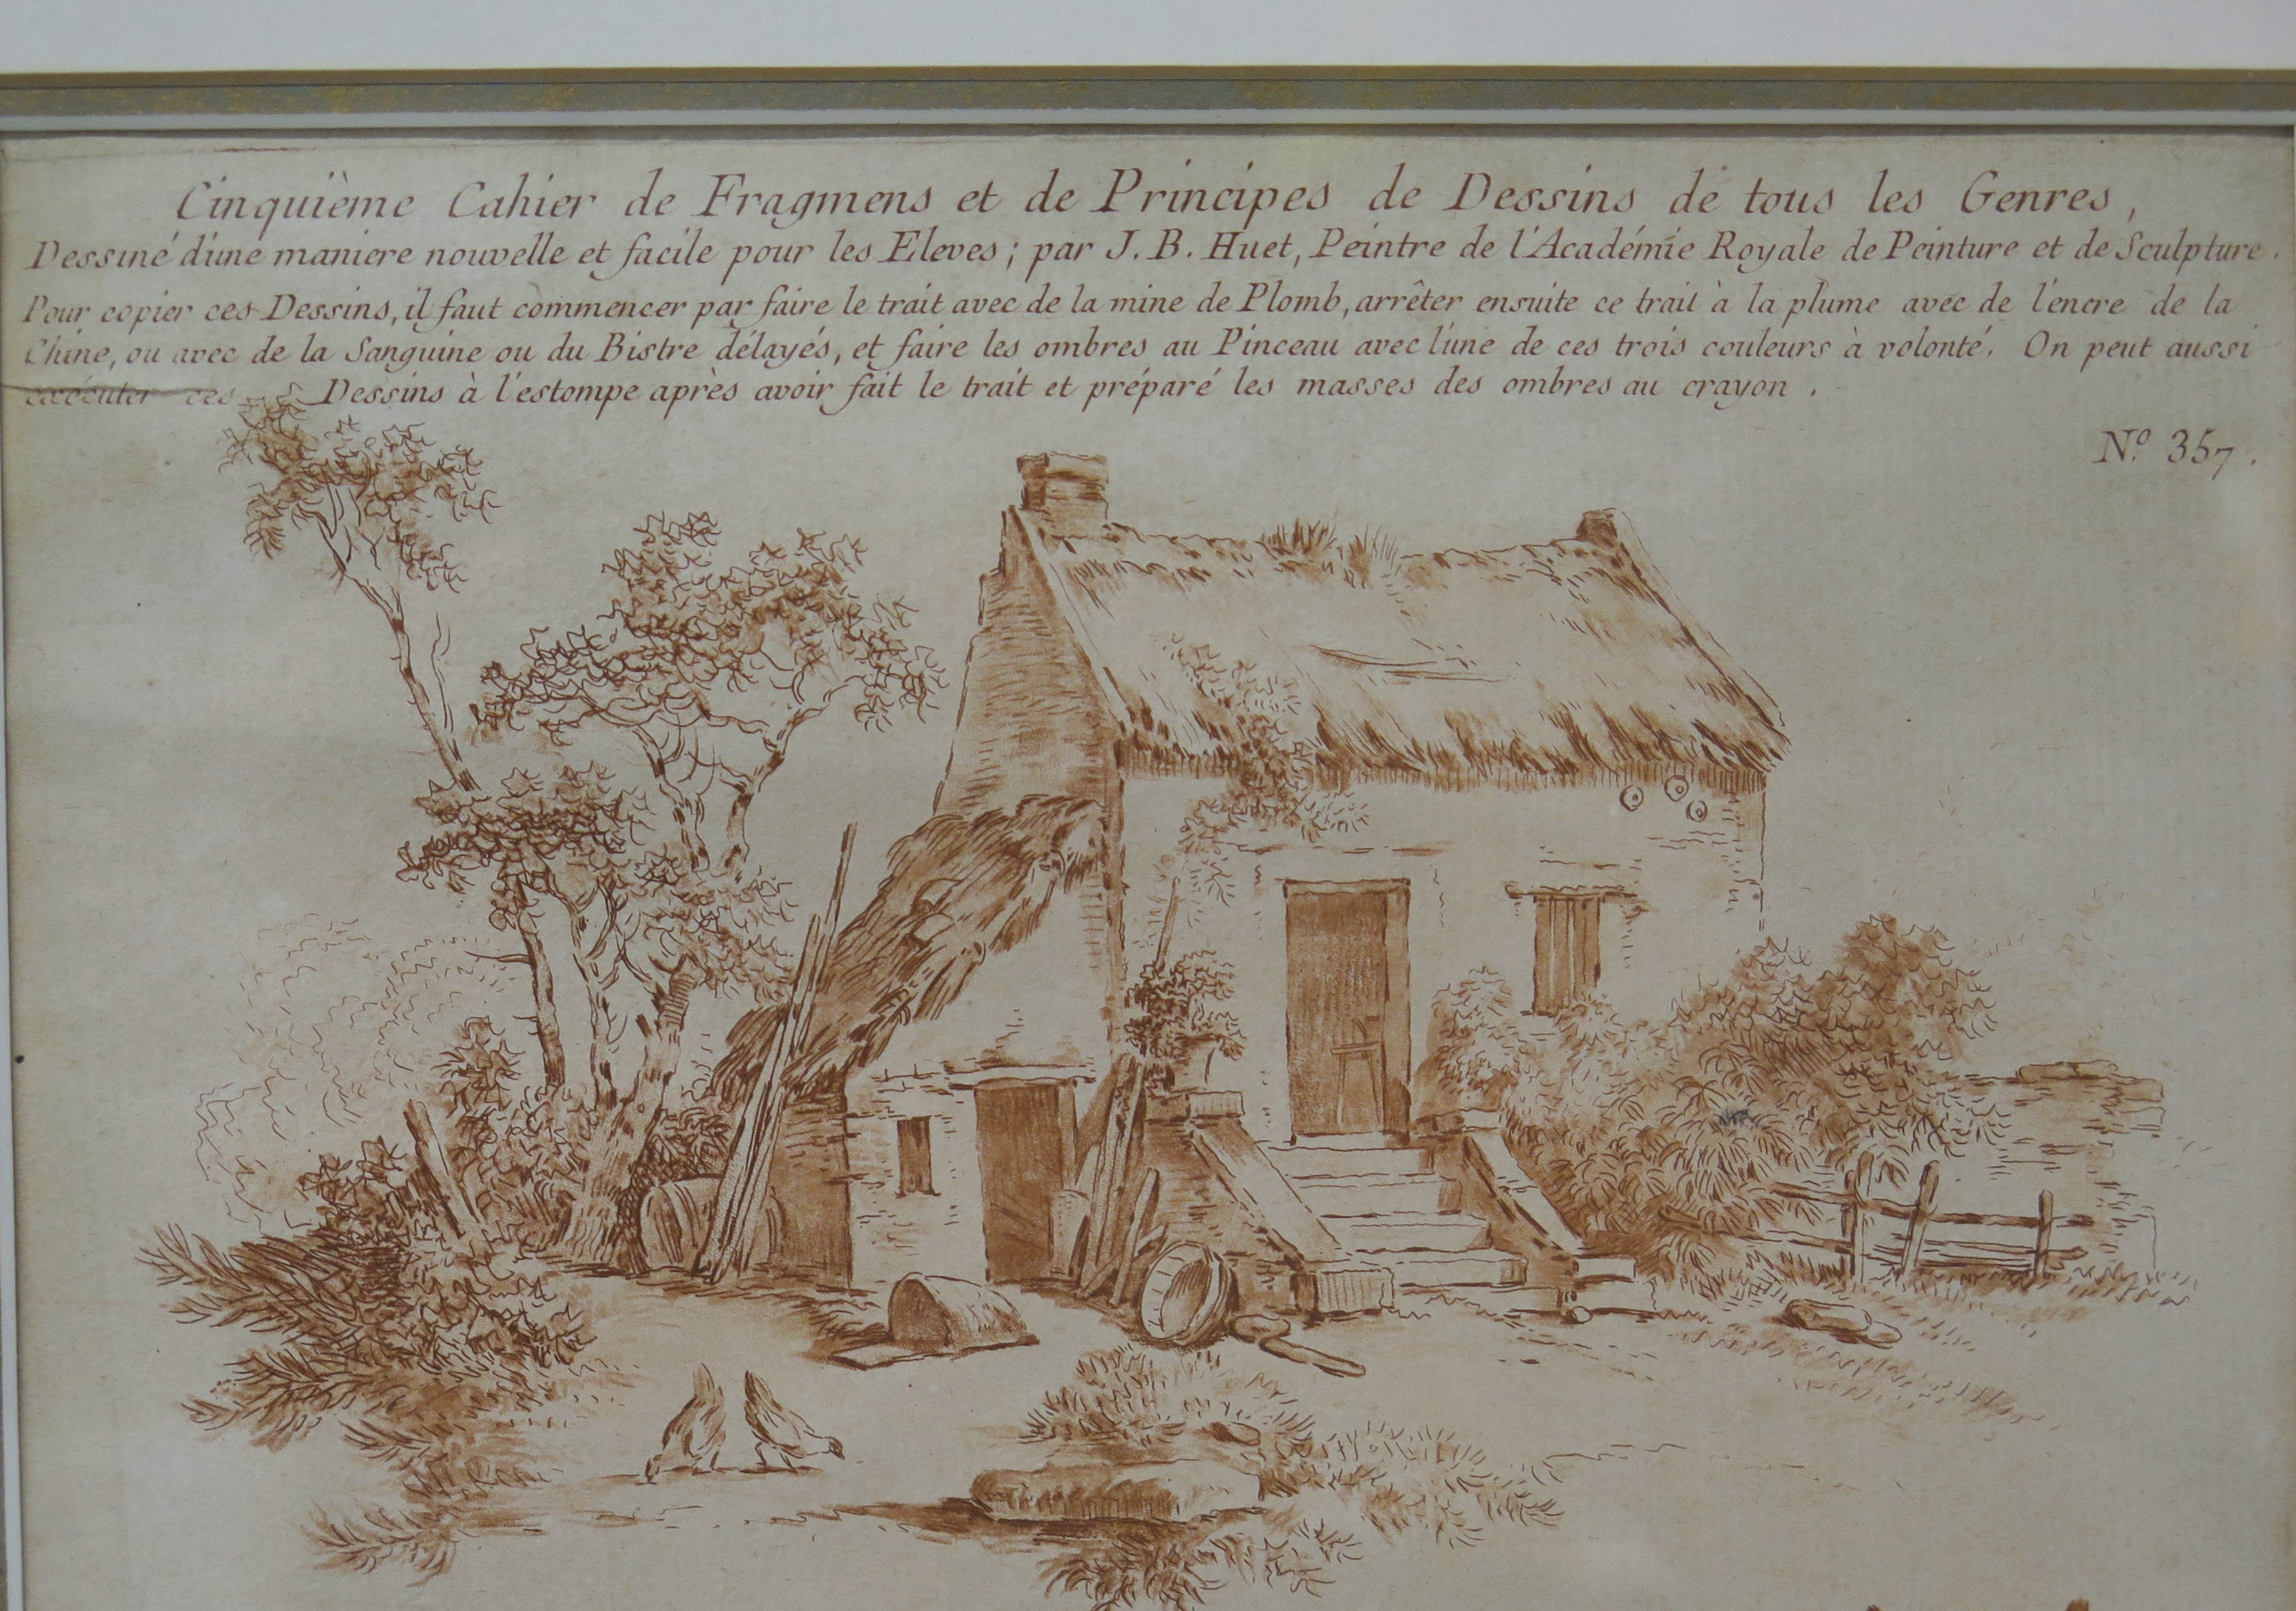 Cinquième Cahier de Fragmens et de Principes de Dessins de tous les Genres,
Dessiné d'une maniere nouvelle et facile pour les Eleves; par J. B. Huet, Peintre de l'Académie Royale de Peinture et de Sculpture.
Pour copier ces Dessins, il faut commencer par faire le trait avec de la mine de Plomb, arrêter ensuite ce trait à la plume avec de l'encre de la
Chine, ou avec de la Sanguine ou du Bistre délayés, et faire les ombres au Pinceau avec l'une de ces trois couleurs à volonté. On peut aussi
exécuter ces Dessins à l'estompe après avoir fait le trait et préparé les masses des ombres au crayon.
N.º 357.